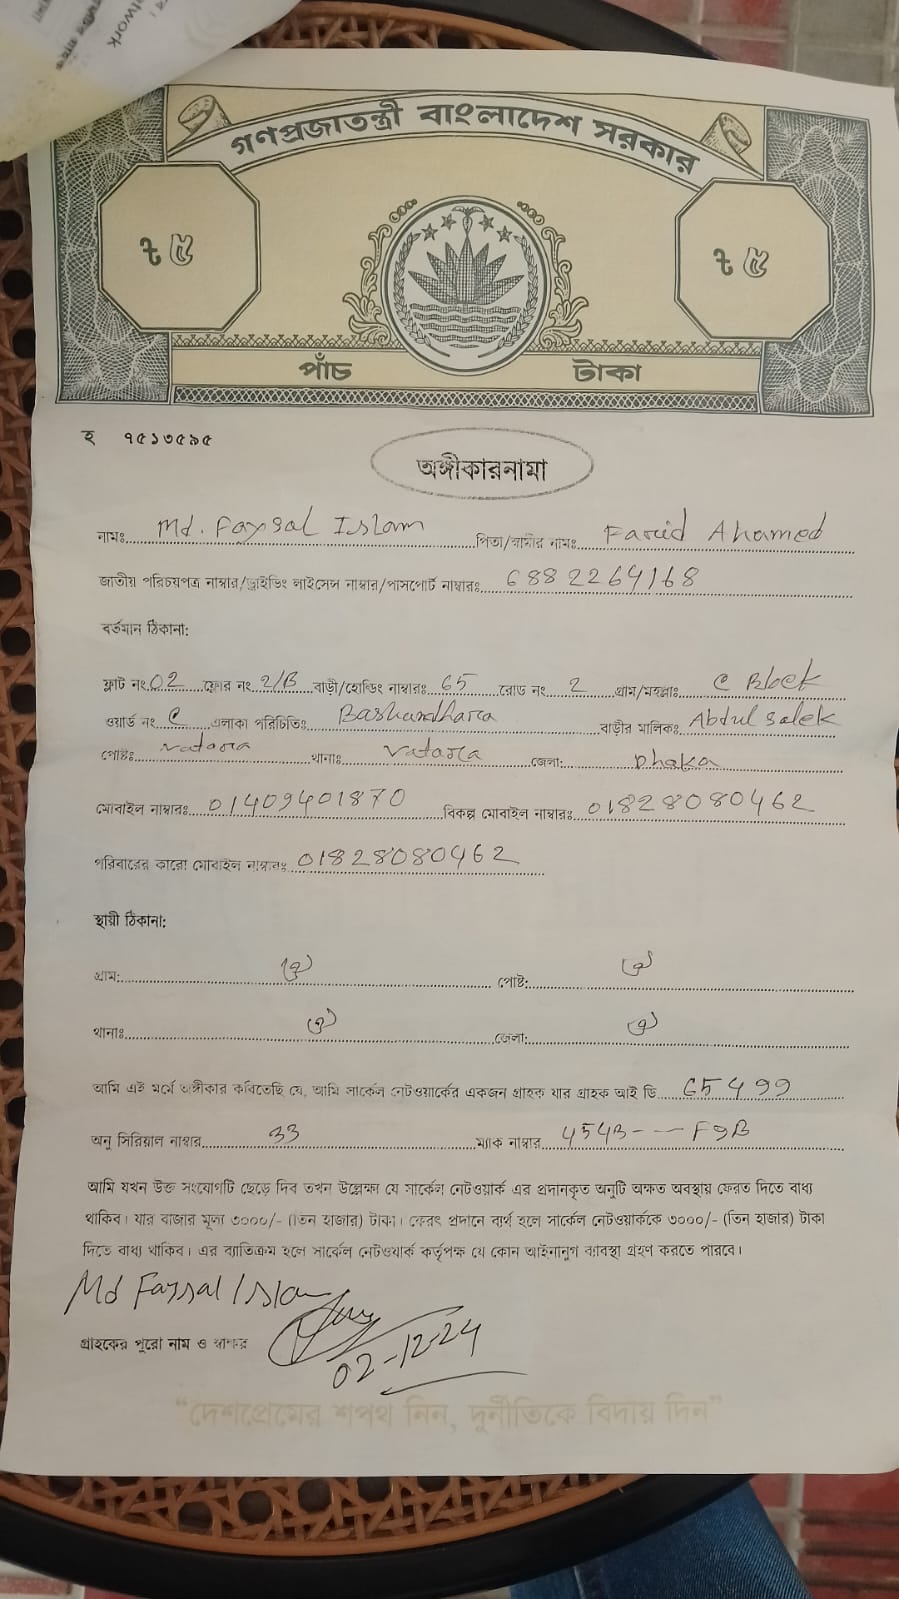 গণপ্রজাতন্ত্রী বাংলাদেশ সরকার
৳ ৫ ৳ ৫
পাঁচ টাকা
হ ৭৫১৩৫৯৫
অঙ্গীকারনামা
নামঃ Md. Faysal Islam পিতা/স্বামীর নামঃ Farid Ahamed
জাতীয় পরিচয়পত্র নাম্বার/ড্রাইভিং লাইসেন্স নাম্বার/পাসপোর্ট নাম্বারঃ 6882264168
বর্তমান ঠিকানা:
ফ্লাট নং 02 ফ্লোর নং 2/B বাড়ী/হোল্ডিং নাম্বারঃ 65 রোড নং 2 গ্রাম/মহল্লাঃ C Block
ওয়ার্ড নং এলাকা পরিচিতিঃ Bashundhara বাড়ীর মালিকঃ Abdul Salek
পোষ্টঃ Vatara থানাঃ Vatara জেলা: Dhaka
মোবাইল নাম্বারঃ 01409401870 বিকল্প মোবাইল নাম্বারঃ 01828080462
পরিবারের কারো মোবাইল নাম্বারঃ 01828080462
স্থায়ী ঠিকানা:
গ্রাম: পোষ্ট:
থানাঃ জেলা:
আমি এই মর্মে অঙ্গীকার করিতেছি যে, আমি সার্কেল নেটওয়ার্কের একজন গ্রাহক যার গ্রাহক আই ডি 65499
অনু সিরিয়াল নাম্বার 33 ম্যাক নাম্বার 454B --- F9B
আমি যখন উক্ত সংযোগটি ছেড়ে দিব তখন উল্লেক্ষ্য যে সার্কেল নেটওয়ার্ক এর প্রদানকৃত অনুটি অক্ষত অবস্থায় ফেরত দিতে বাধ্য
থাকিব। যার বাজার মূল্য ৩০০০/- (তিন হাজার) টাকা। ফেরৎ প্রদানে ব্যর্থ হলে সার্কেল নেটওয়ার্ককে ৩০০০/- (তিন হাজার) টাকা
দিতে বাধ্য থাকিব। এর ব্যতিক্রম হলে সার্কেল নেটওয়ার্ক কর্তৃপক্ষ যে কোন আইনানুগ ব্যবস্থা গ্রহণ করতে পারবে।
Md Faysal Islam
গ্রাহকের পুরো নাম ও স্বাক্ষর
02-12-24
“দেশপ্রেমের শপথ নিন, দুর্নীতিকে বিদায় দিন”